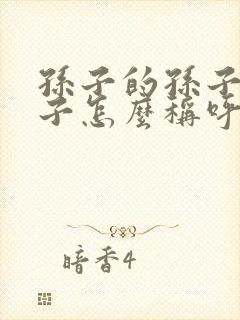 孫子的孫子
子怎麼稱呼
暗香4